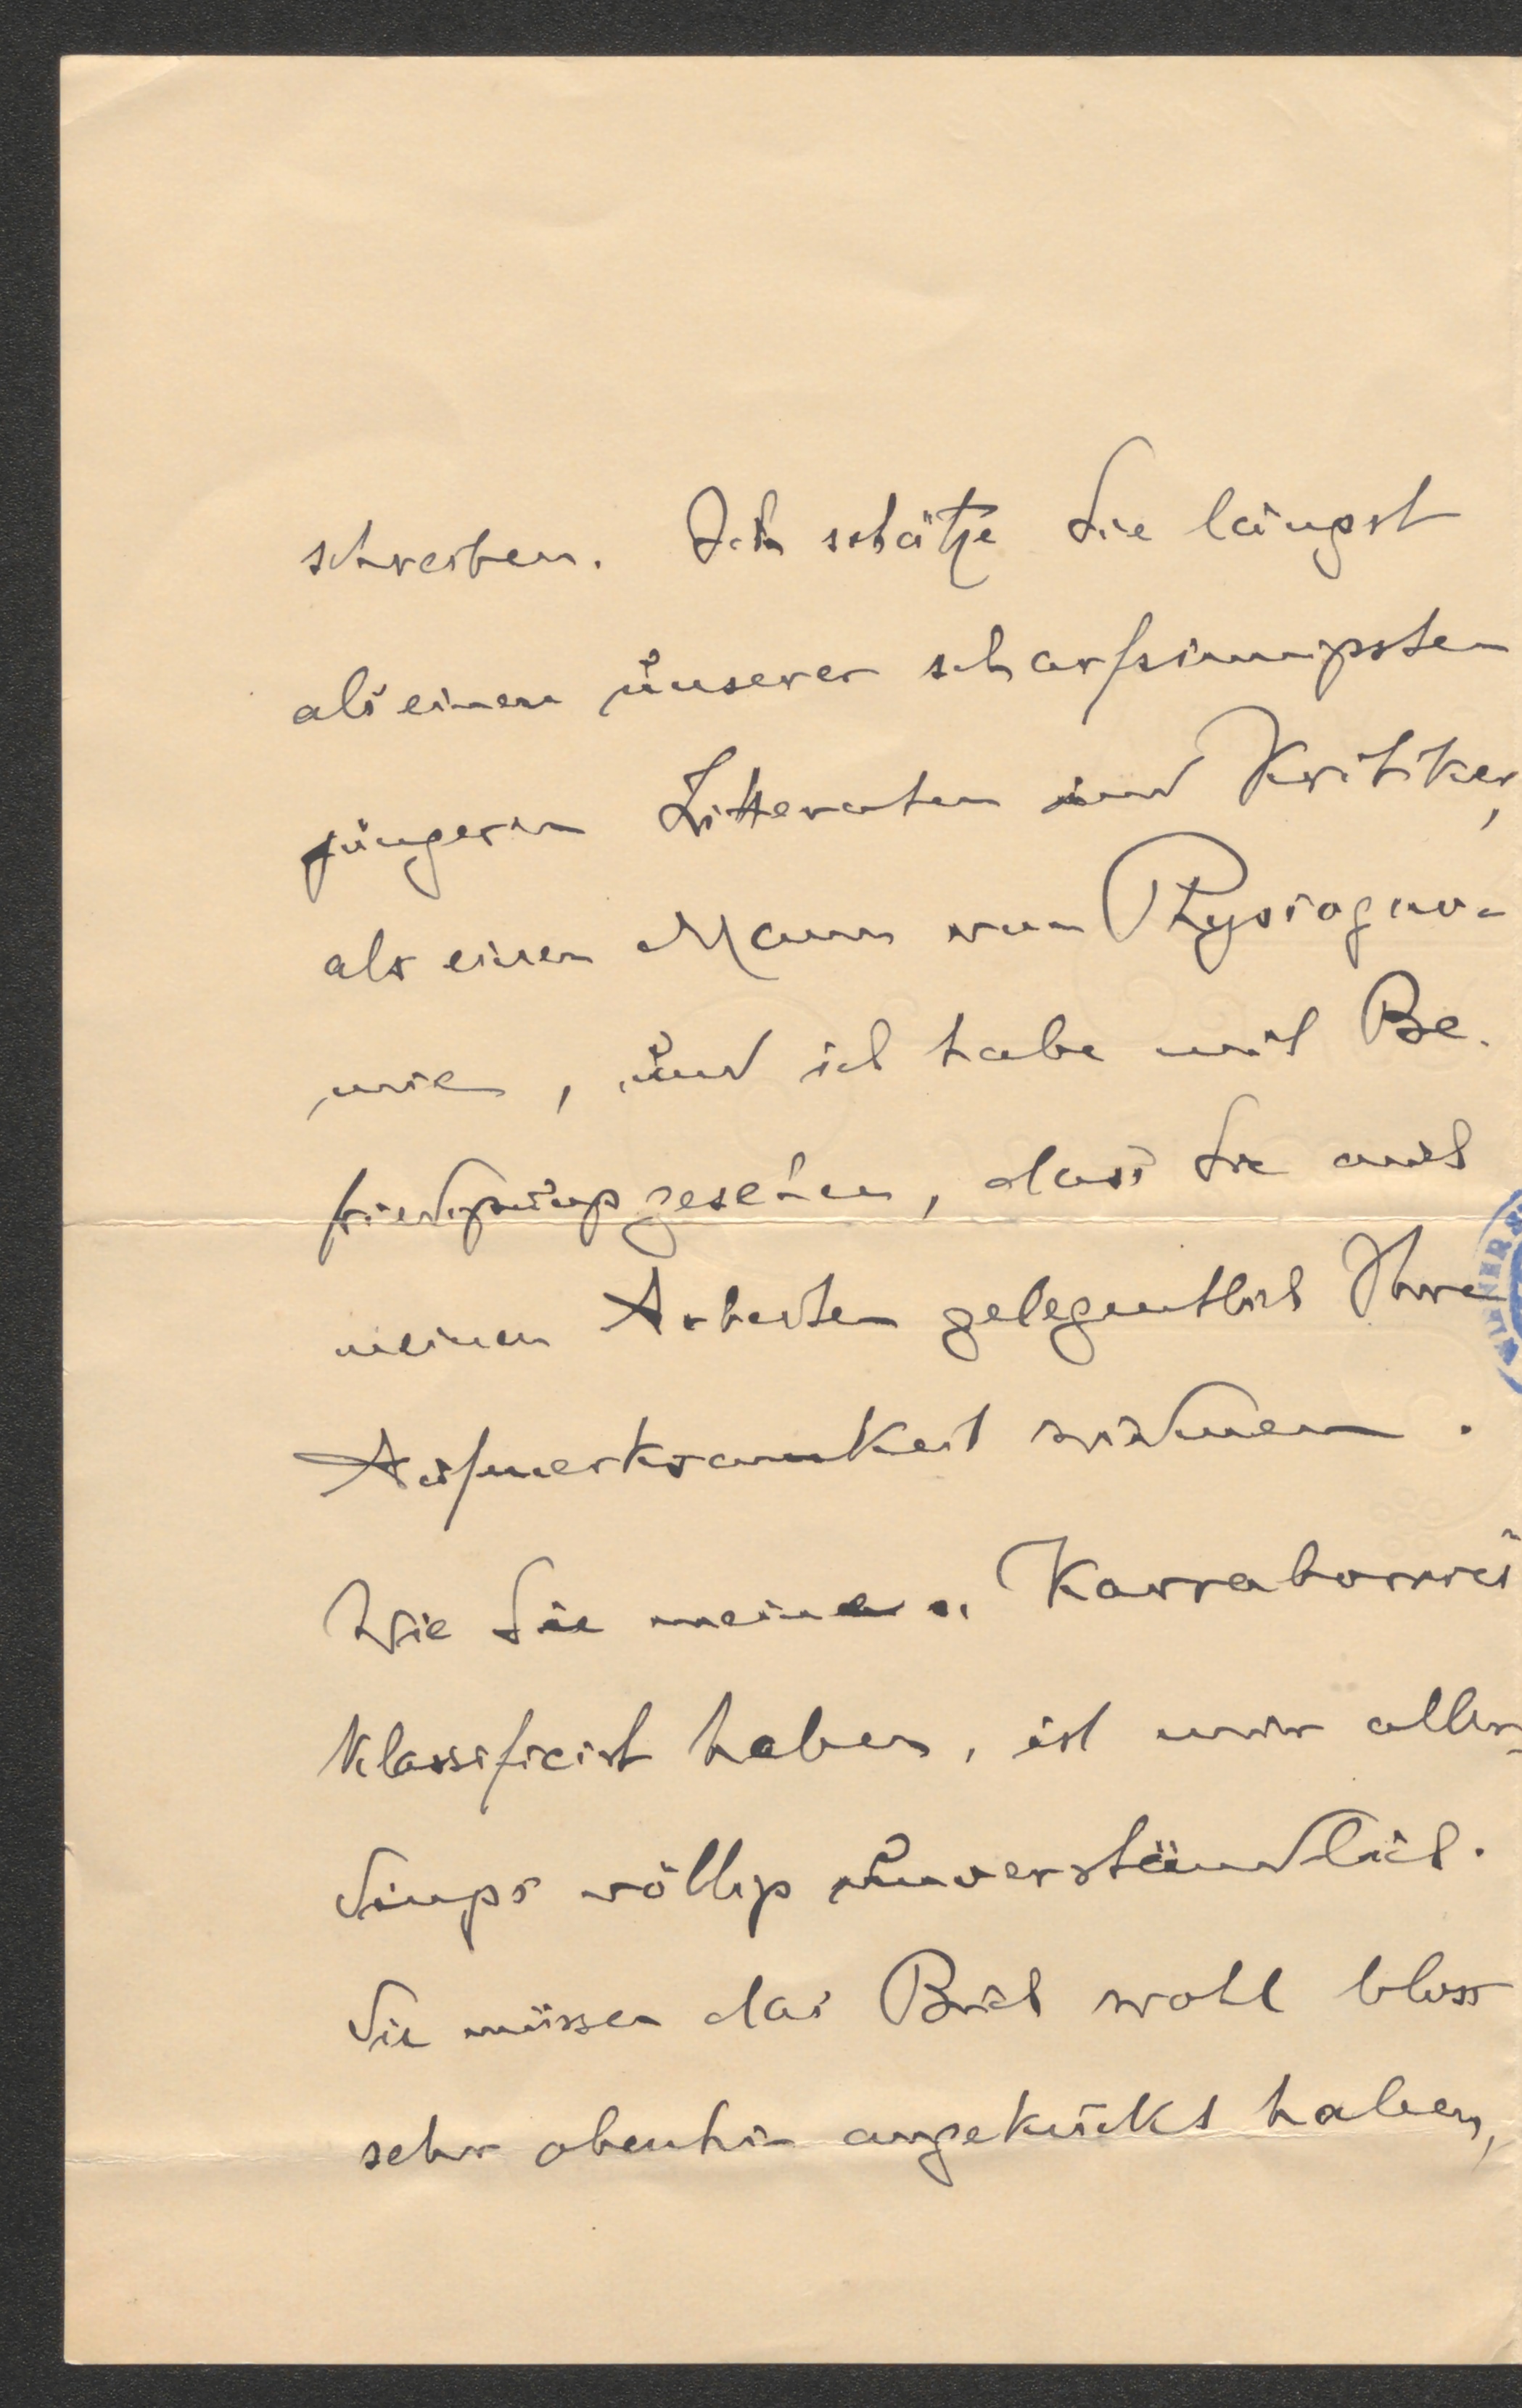 schreiben. Ich schätze Sie längst
als einen unserer scharfsinnigsten
jüngeren Litteraten und Kritiker,
als einen Mann von Physiogno-
mie, und ich habe mit Be-
friedigung gesehen, dass Sie auch
meinen Arbeiten gelegentlich Ihre
Aufmerksamkeit widmen.
Wie Sie meine „Karraborries
klassificirt haben, ist mir aller-
dings völlig unverständlich.
Sie müssen das Buch wohl bloss
sehr obenhin angekuckt haben,